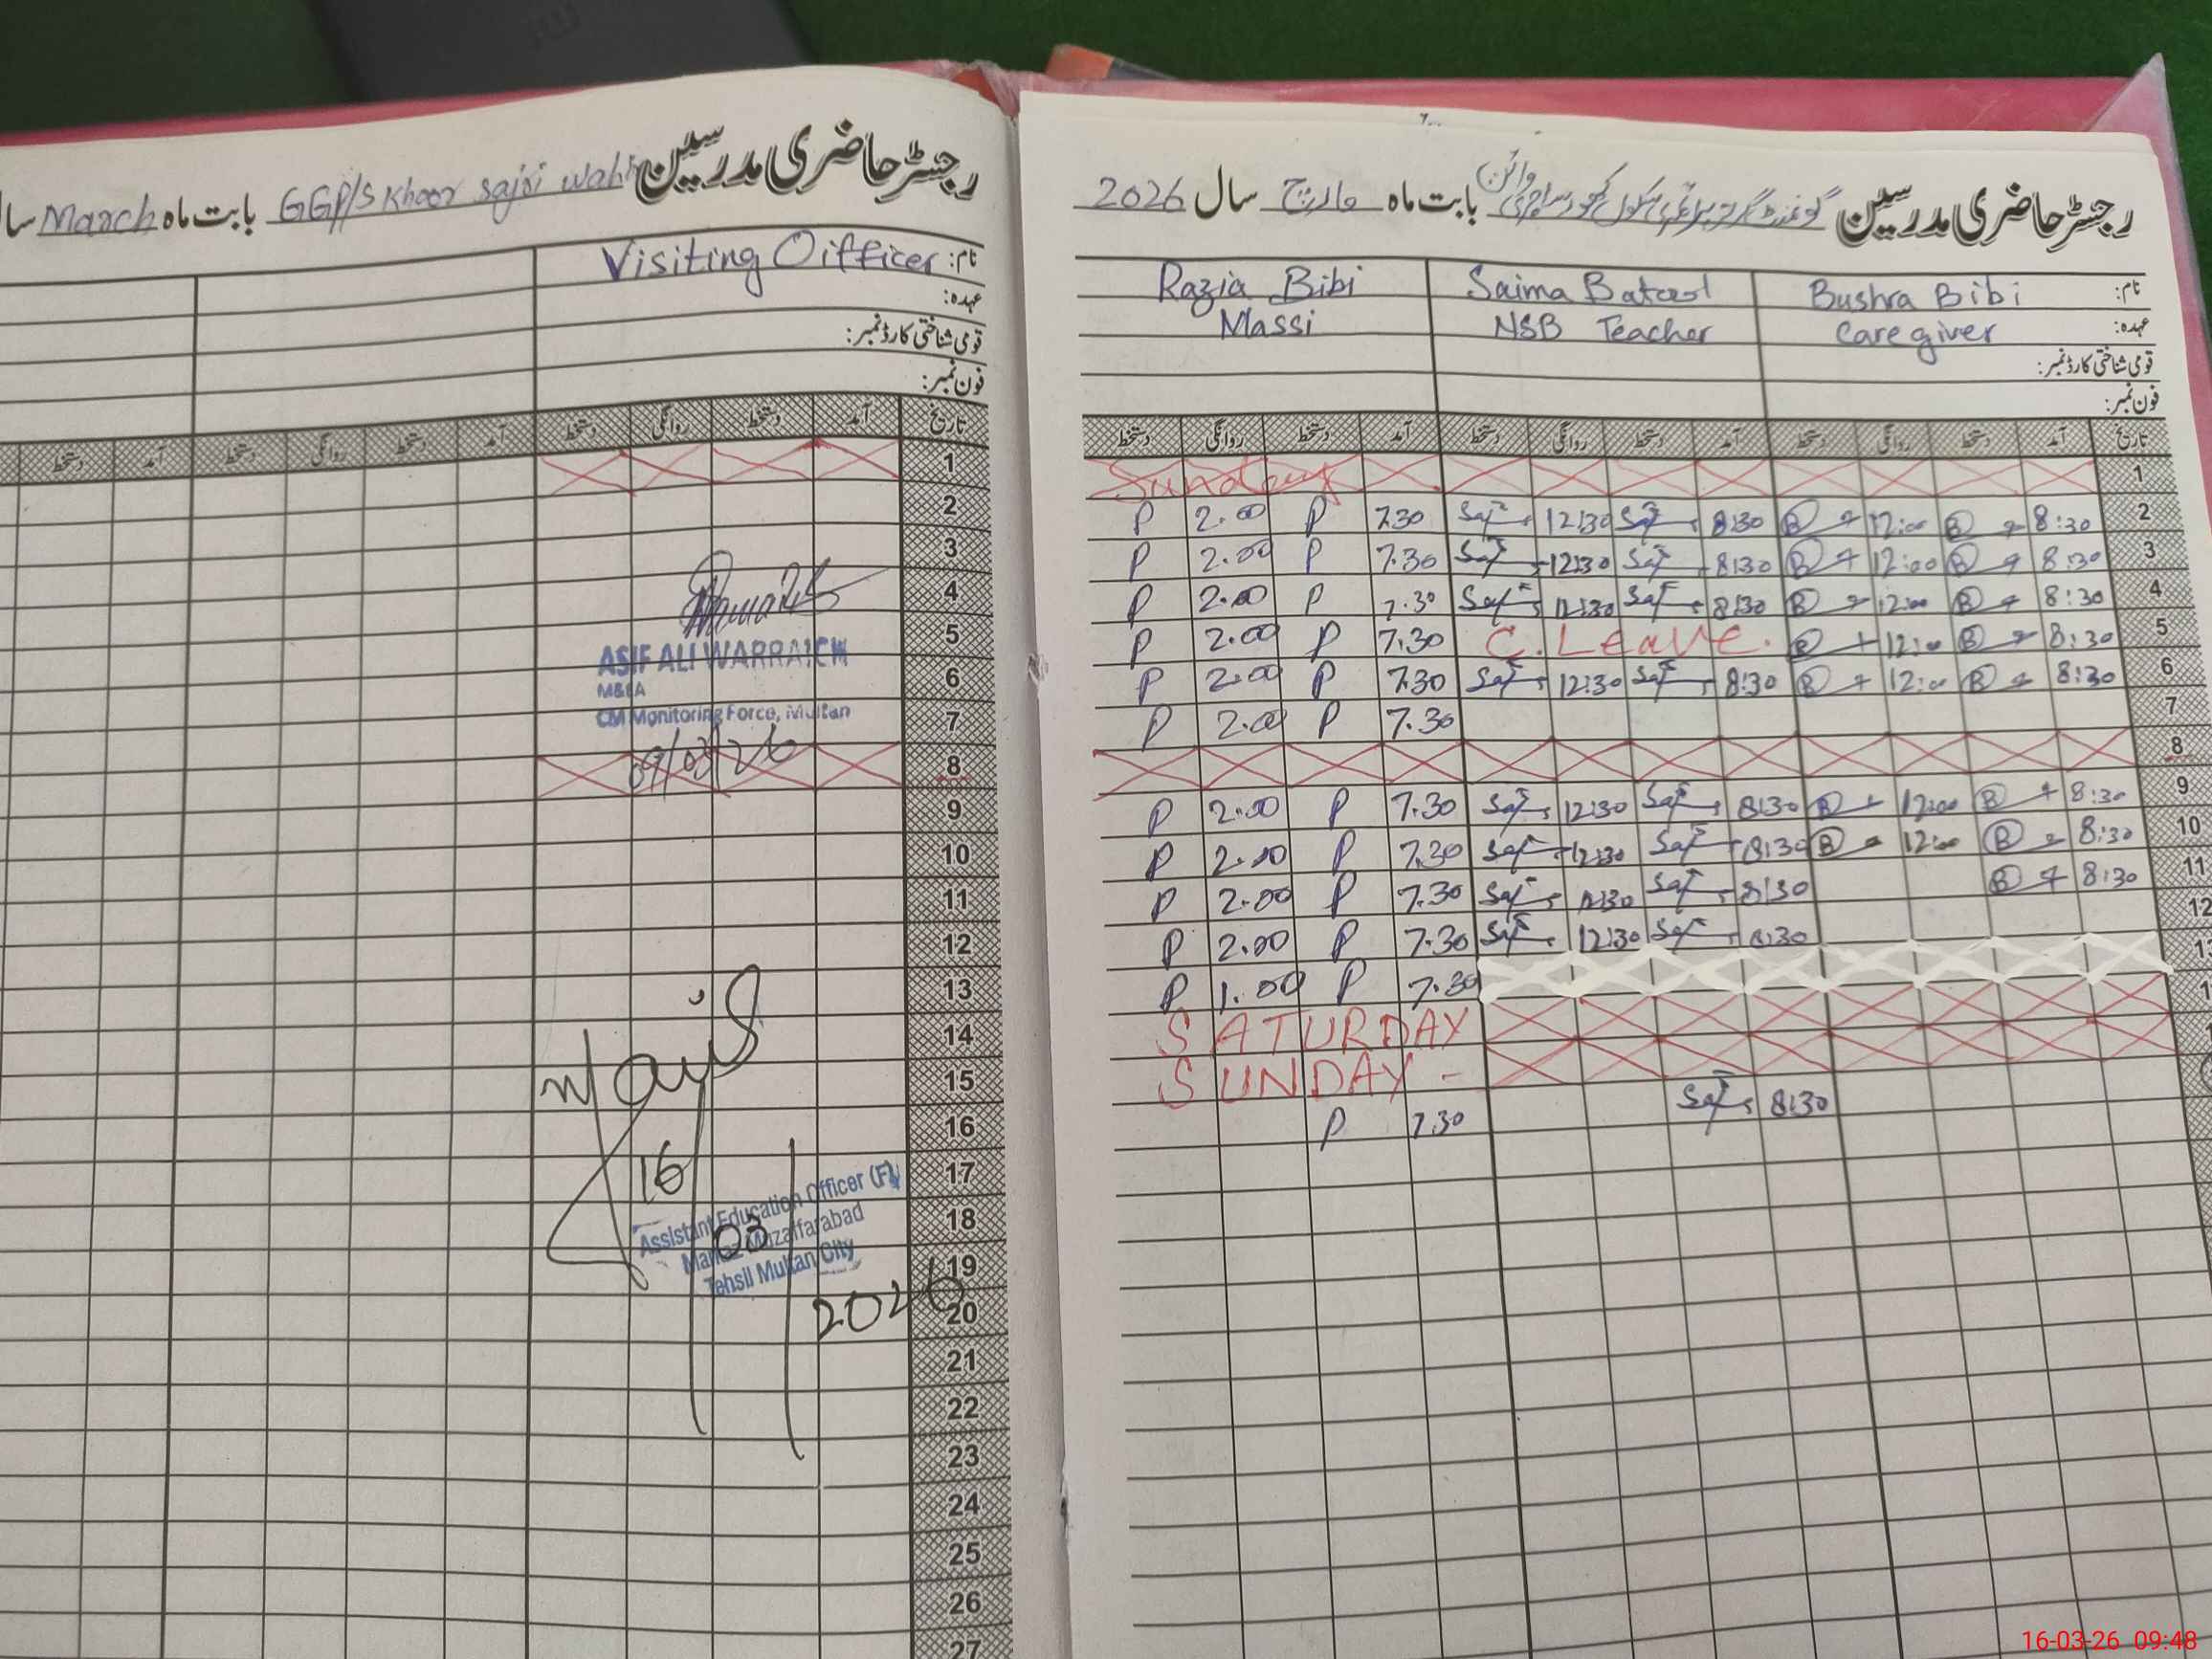 رجسٹر حاضری مدرسین GGP/S Khoor sajoi wahn بابت ماہ March سا
نام: Visiting Oifficer
عہدہ:
قومی شناختی کارڈ نمبر:
فون نمبر:
تاریخ آمد دستخط روانگی دستخط آمد دستخط روانگی دستخط آمد دستخط
1
2
3
4
5
ASIF ALI WARRAICH
6
M&EA
7
CM Monitoring Force, Multan
8
09/03/26
9
10
11
12
13
14
15
16
16
17
Assistant Education Officer (F)
18
03
Markaz Muzaffarabad
19
Tehsil Multan City
20
2026
21
22
23
24
25
26
27
رجسٹر حاضری مدرسین گورنمنٹ گرلز پرائمری سکول بابت ماہ مارچ سال 2026
نام: Bushra Bibi Saima Batool Razia Bibi
عہدہ: Caregiver NSB Teacher Massi
قومی شناختی کارڈ نمبر:
فون نمبر:
تاریخ آمد دستخط روانگی دستخط آمد دستخط روانگی دستخط آمد دستخط روانگی دستخط
Sunday 1
P 2.00 P 7.30 12:30 8:30 B 12:00 B 8:30 2
P 2.00 P 7.30 12:30 8:30 B 12:00 B 8:30 3
P 2.00 P 7.30 12:30 8:30 B 12:00 B 8:30 4
P 2.00 P 7.30 C. Leave. B 12:00 B 8:30 5
P 2.00 P 7.30 12:30 8:30 B 12:00 B 8:30 6
P 2.00 P 7.30 7
8
P 2.00 P 7.30 12:30 8:30 B 12:00 B 8:30 9
P 2.00 P 7.30 12:30 8:30 B 12:00 B 8:30 10
P 2.00 P 7.30 12:30 8:30 B 8:30 11
P 2.00 P 7.30 12:30 8:30 12
P 1.00 P 7.30
SATURDAY
SUNDAY -
P 7.30 8:30
16-03-26 09:48